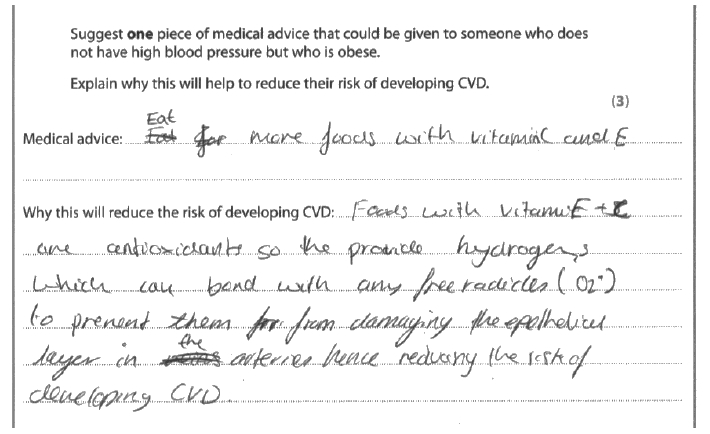 Suggest one piece of medical advice that could be given to someone who does
not have high blood pressure but who is obese.
Explain why this will help to reduce their risk of developing CVD.
(3)
Medical advice: Eat more foods with vitamin C and E
Why this will reduce the risk of developing CVD: Foods with vitamin E + C
are antioxidants so the provide hydrogens
which can bond with any free radicles (O2°)
to prevent them from damaging the epolthelical
layer in the arteries hence reducing the risk of
developing CVD.